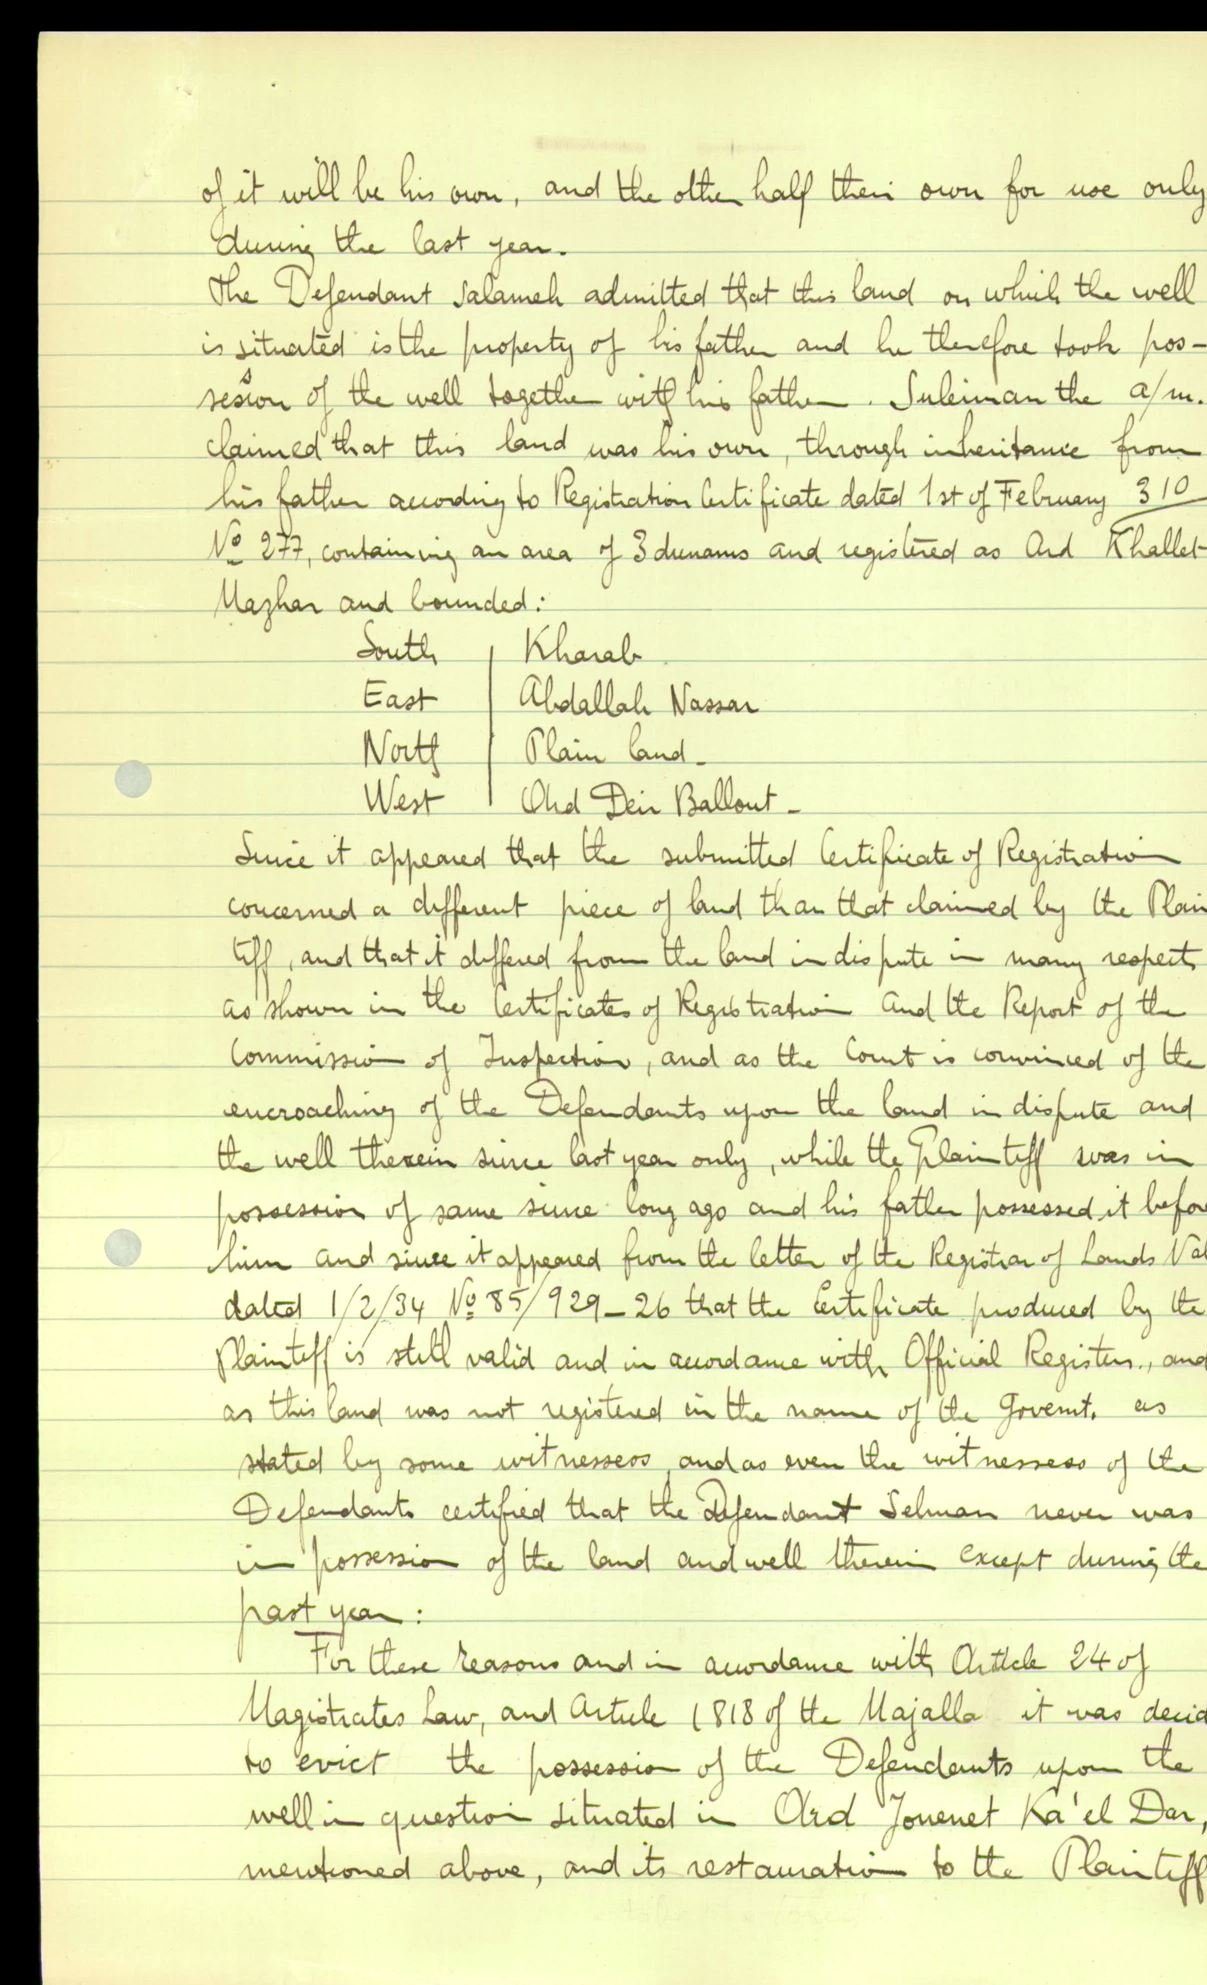 of it will be his own, and the other half their own for use only
during the last year.
The Defendant Salameh admitted that this land on which the well
is situated is the property of his father and he therefore took pos-
session of the well together with his father. Suleiman the a/m.
claimed that this land was his own, through inheritance from
his father according to Registration Certificate dated 1st of February 310
No 277, containing an area of 3 dunams and registered as Ard Khallet
Mazhar and bounded:
South | Kharab
East | Abdallah Nassar
North | Plain land_
West | Ard Deir Ballout_
Since it appeared that the submitted Certificate of Registration
concerned a different piece of land than that claimed by the Plain
tiff, and that it differed from the land in dispute in many respects
as shown in the Certificates of Registration and the Report of the
Commission of Inspection, and as the Court is convinced of the
encroaching of the Defendants upon the land in dispute and
the well therein since last year only, while the Plaintiff was in
possession of same since long ago and his father possessed it before
him and since it appeared from the letter of the Registrar of Lands
dated 1/2/34 No 85/929_26 that the Certificate produced by the
Plaintiff is still valid and in accordance with Official Registers, and
as this land was not registered in the name of the Govemt. as
stated by some witnesses, and as even the witnesses of the
Defendants certified that the Defendant Selman never was
in possession of the land and well therein except during the
past year:
For these reasons and in accordance with Article 24 of
Magistrates Law, and Article 1818 of the Majalla it was decid
to evict the possession of the Defendants upon the
well in question situated in Ard Jouenet Ka'el Dar,
mentioned above, and its restauration to the Plaintiff